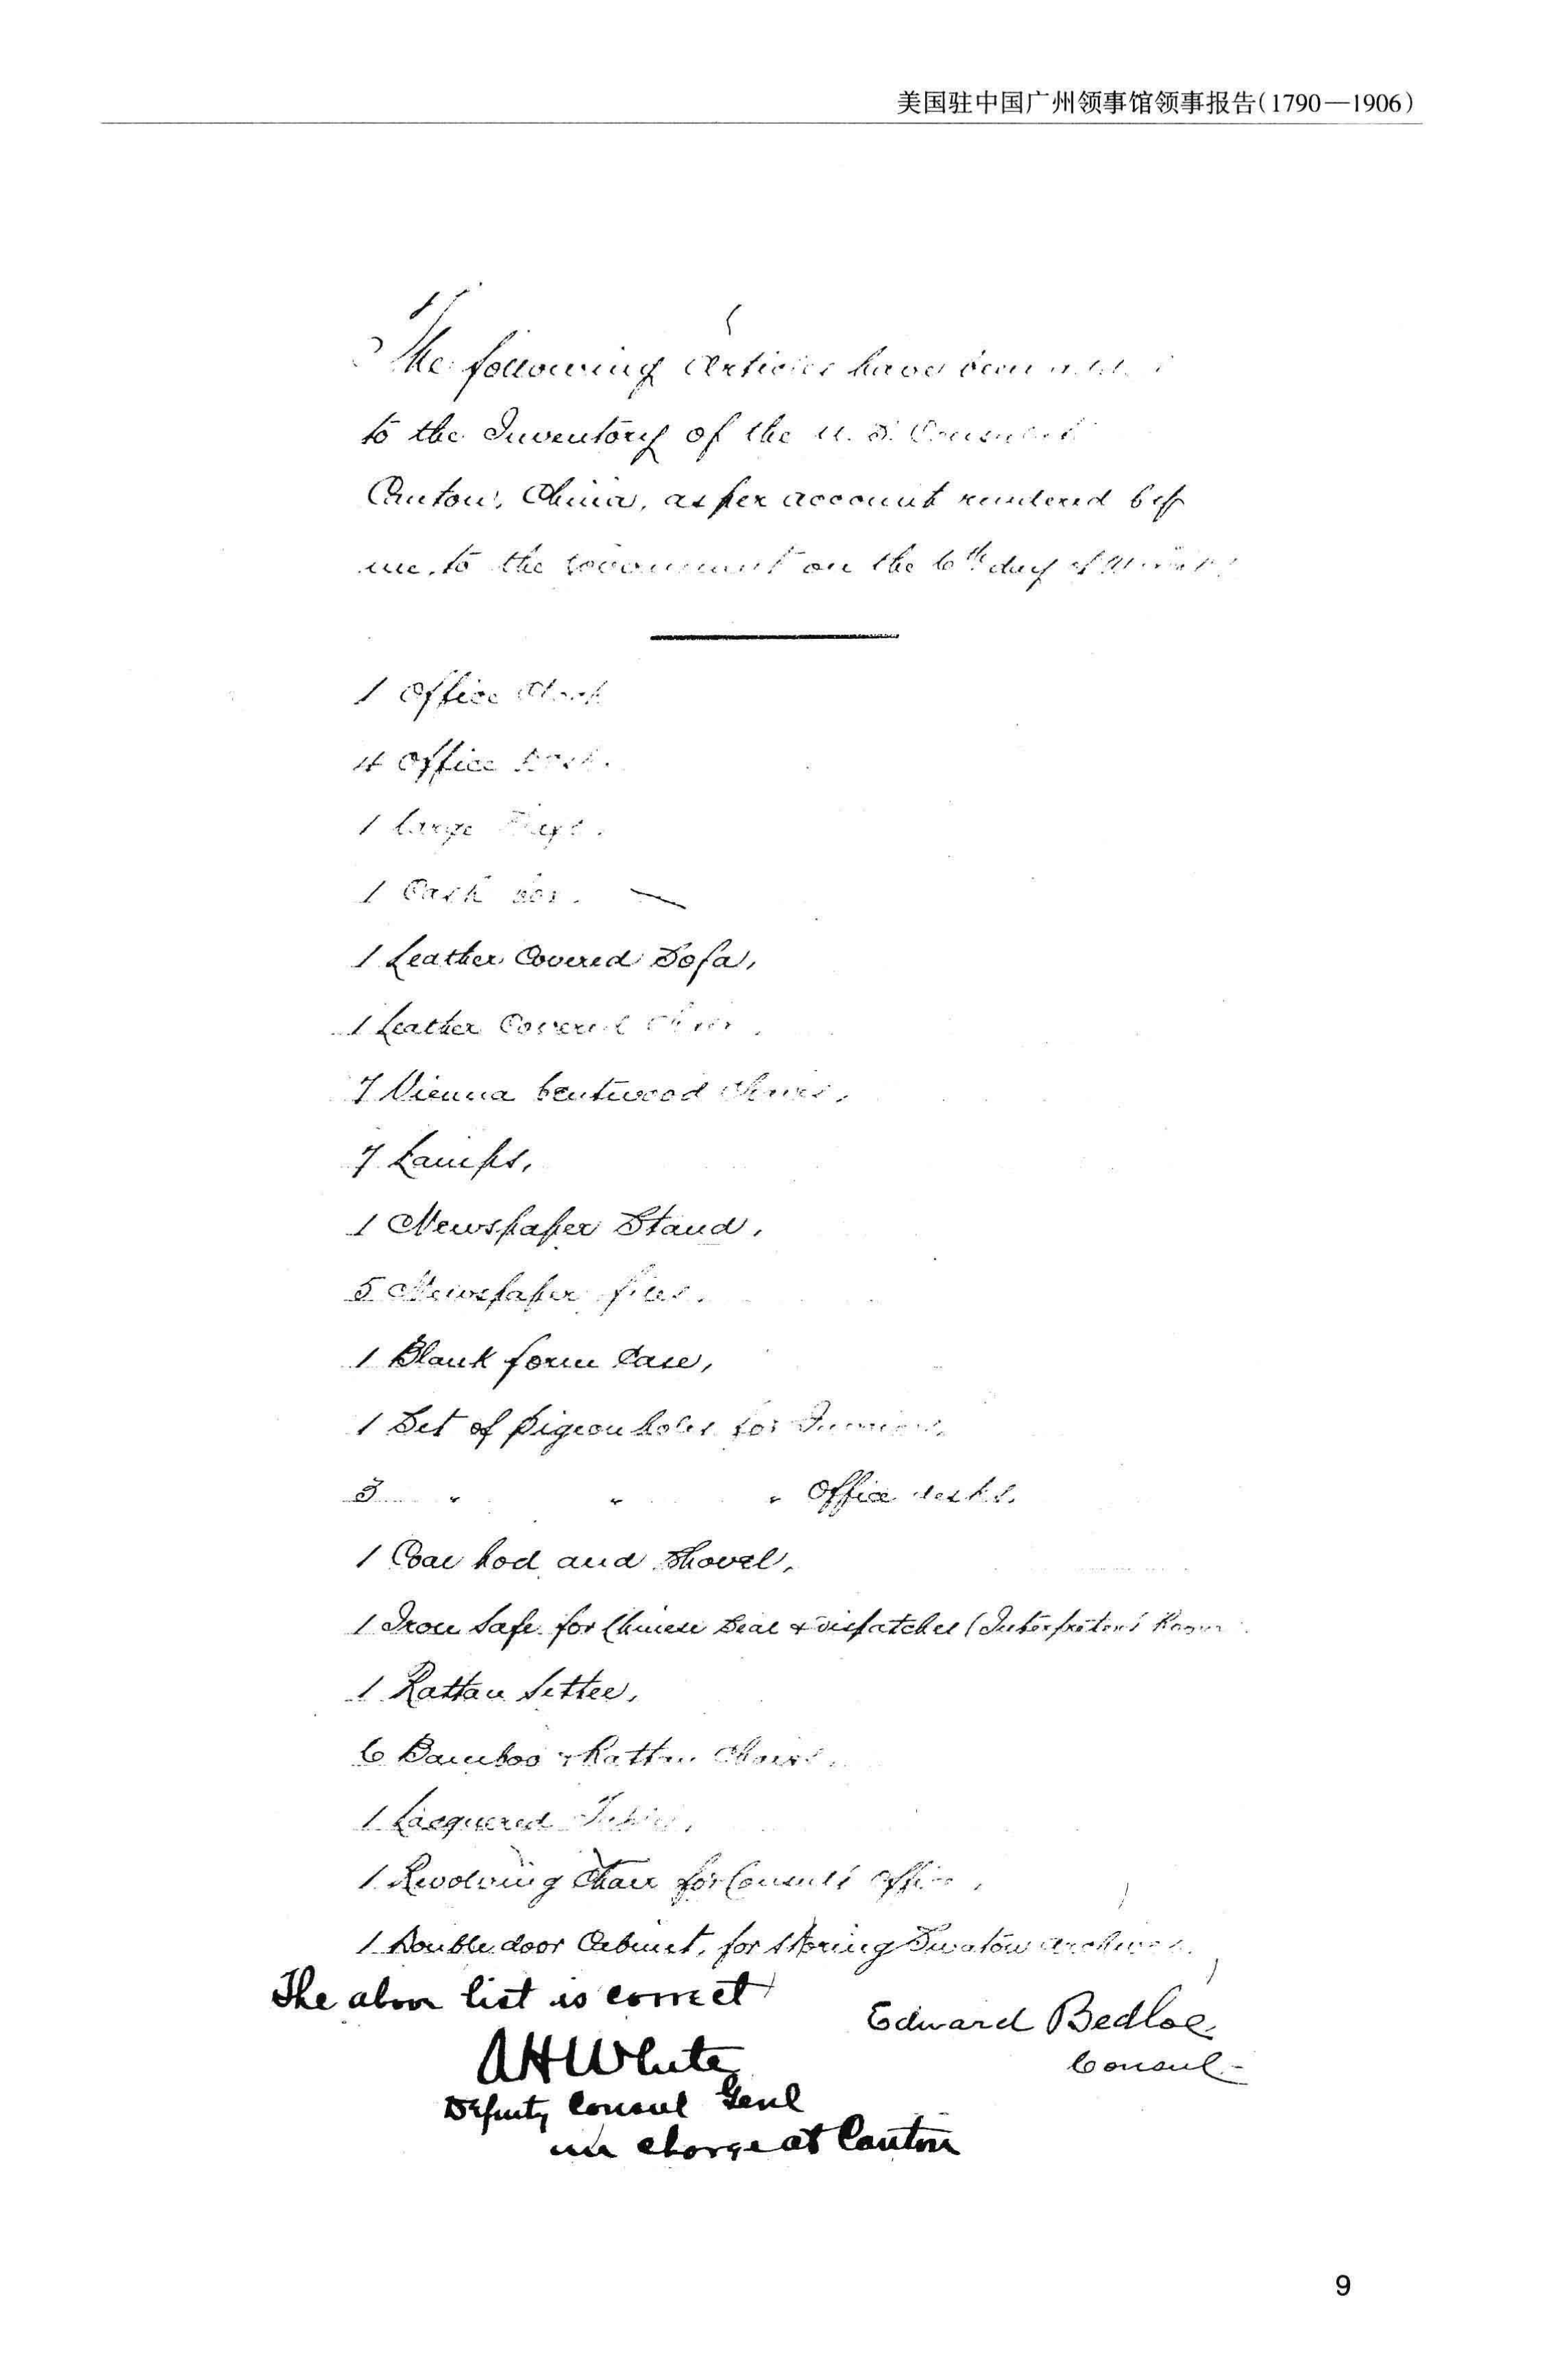 美国驻中国广州领事馆领事报告(1790—1906)
The following Articles have been added
to the Inventory of the U. S. Consulate
Canton, China, as per account rendered by
me, to the Government on the 6th day of
1 Office Clock
4 Office
1 large
1 Cash Box.
1 Leather Covered Sofa,
1 Leather Covered Chair,
7 Vienna bentwood Chairs,
7 Lamps,
1 Newspaper Stand,
5 Newspaper files,
1 Blank form Case,
1 Set of pigeon holes for
3 " " " Office desks.
1 Coal hod and Shovel,
1 Iron Safe for Chinese Seal & dispatches (Interpreter's Room
1 Rattan Settee,
6 Bamboo & Rattan Chairs,
1 Lacquered Table,
1 Revolving Chair for Consul's Office,
1 Double door Cabinet, for storing Swatow archives.
The above list is correct
Edward Bedloe
AHWhite
Consul-
Deputy Consul Genl
in charge at Canton
9